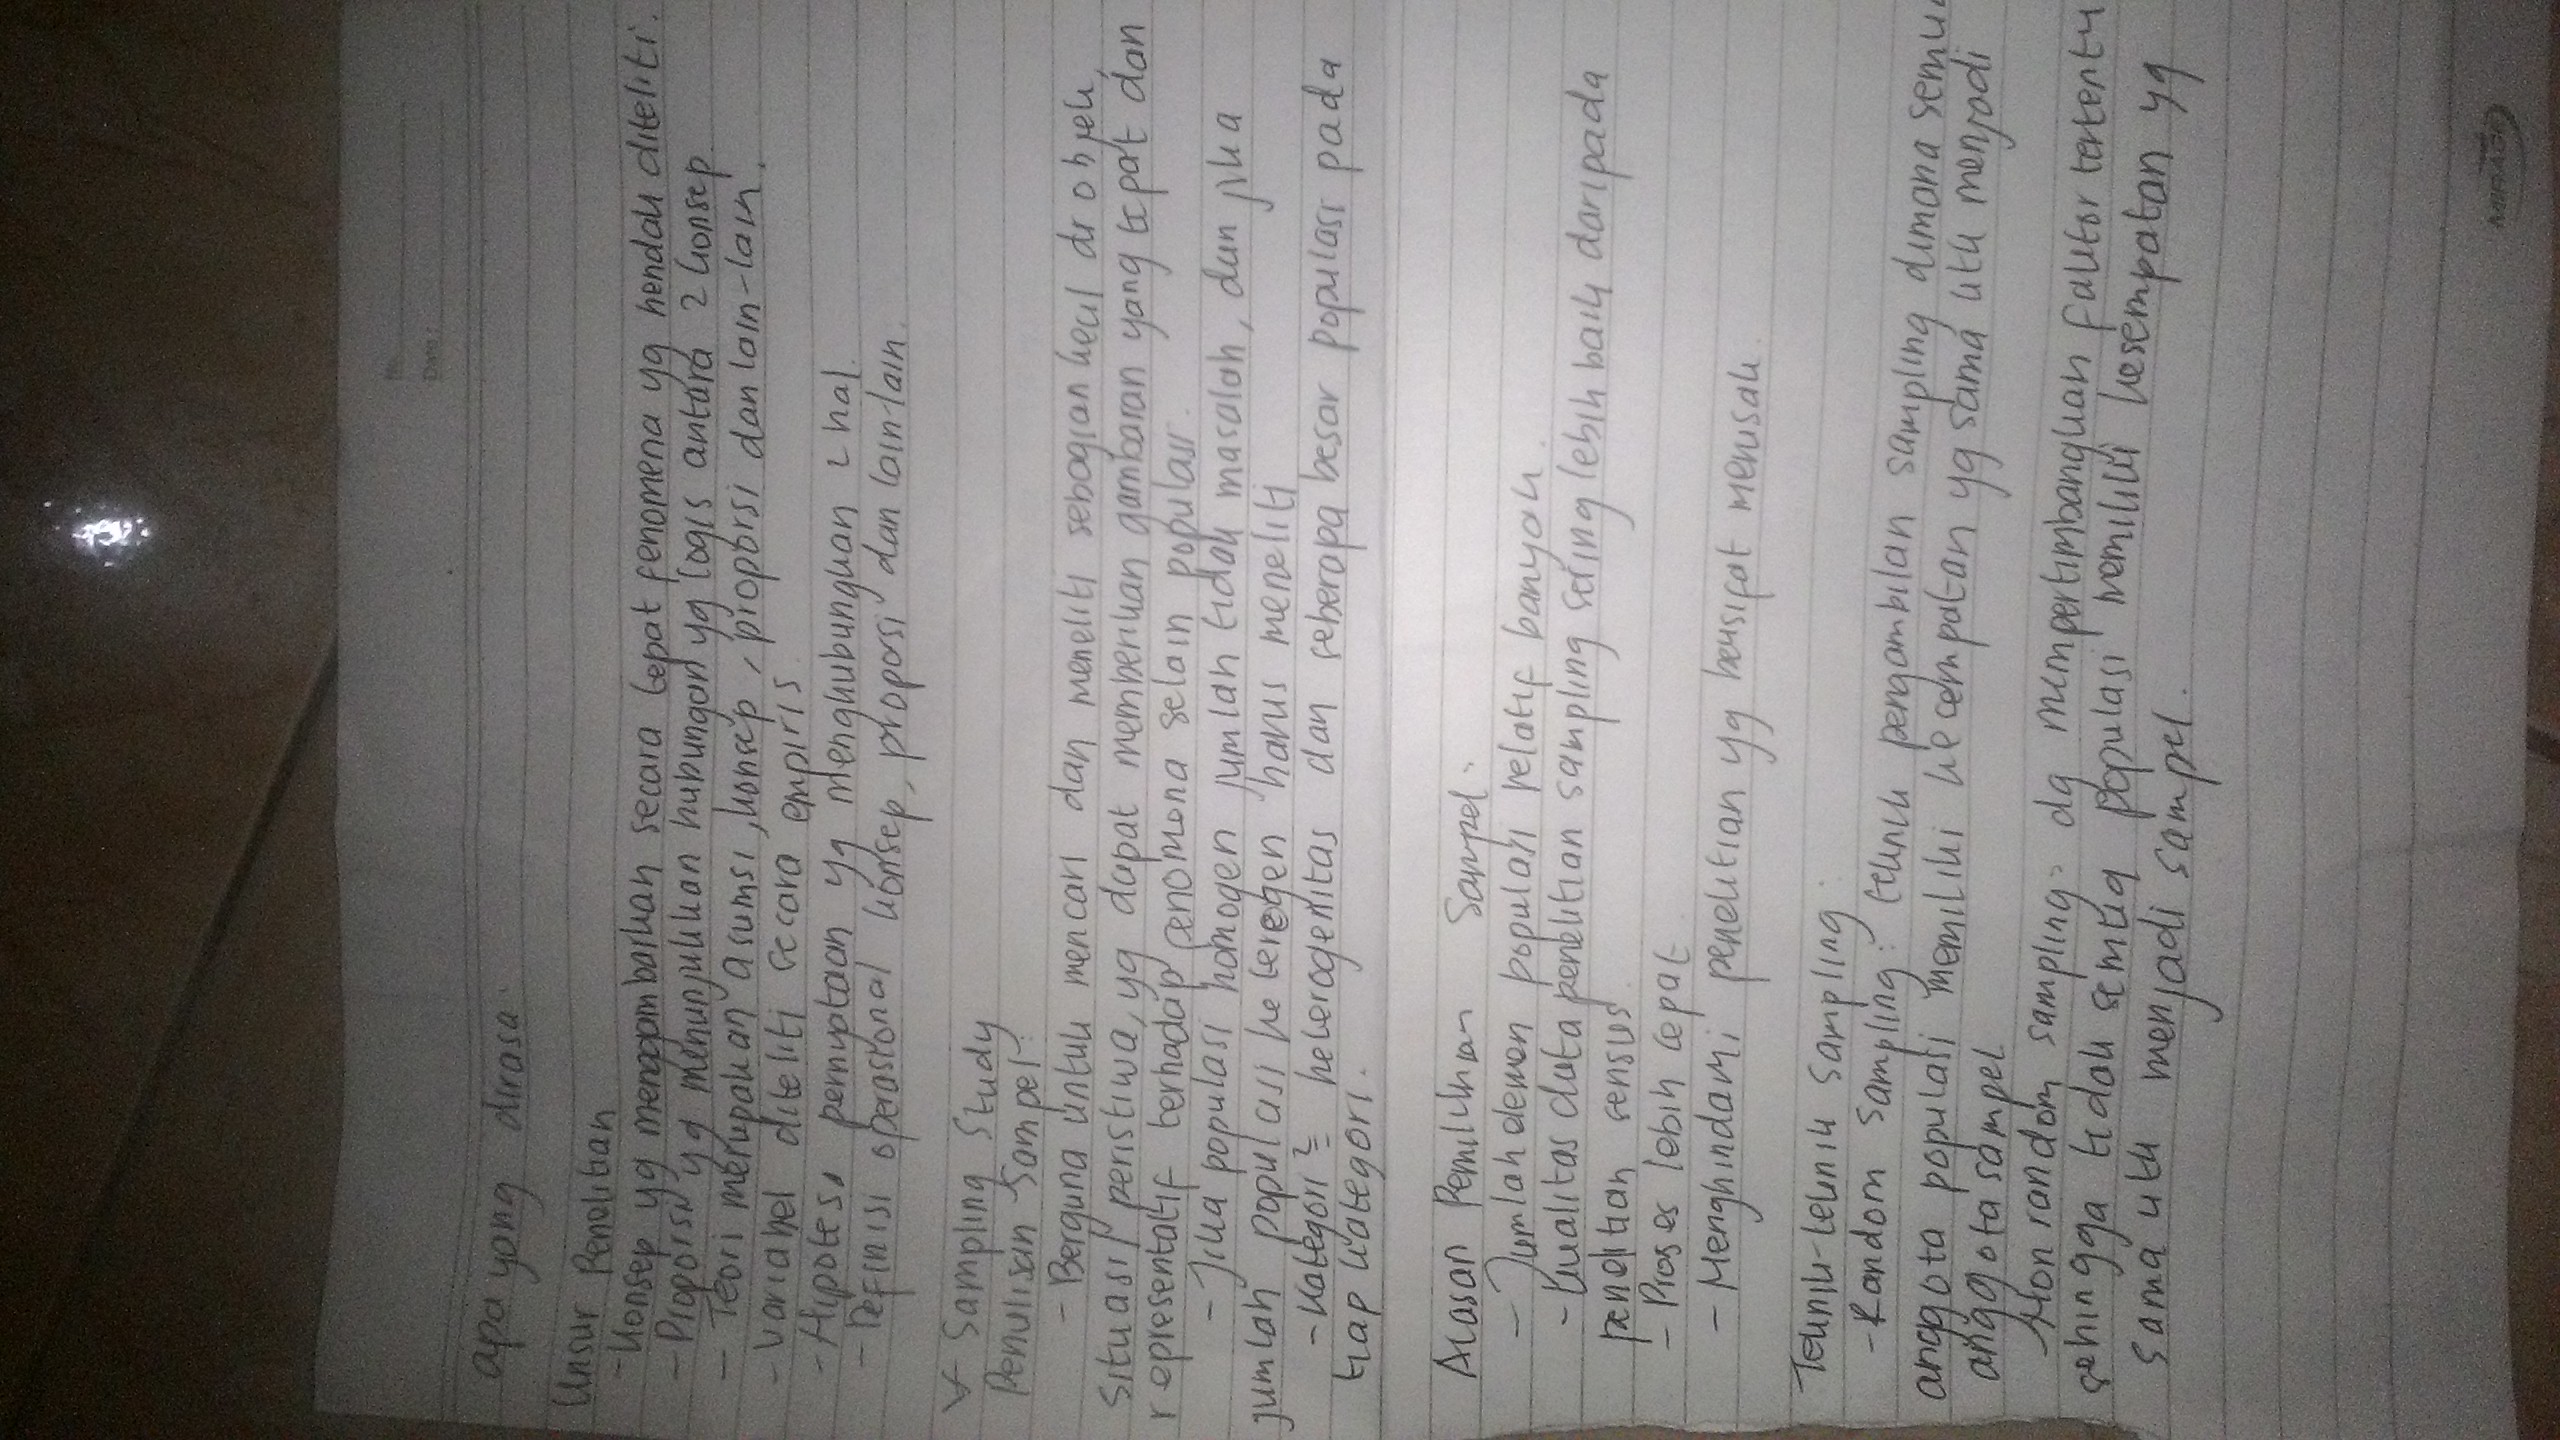 Date :
apa yang dirasa.
Unsur Penelitian
- Konsep yg menggambarkan secara tepat fenomena yg hendak diteliti.
- Proporsi yg menunjukkan hubungan yg logis antara 2 konsep.
- Teori merupakan asumsi, konsep, proporsi dan lain-lain.
- Variabel diteliti secara empiris
- Hipotesi pernyataan yg menghubungkan 2 hal.
- Definisi operasional konsep, proporsi dan lain-lain.
Sampling Study
Penulisan Sampel:
- Berguna untuk mencari dan meneliti sebagian kecil dr objek,
situasi/peristiwa, yg dapat memberikan gambaran yang tepat dan
representatif terhadap fenomena selain populasi.
- Jika populasi homogen jumlah tidak masalah, dan jika
jumlah populasi heterogen harus meneliti
- Kategori2 = heterogenitas dan seberapa besar populasi pada
tiap kategori.
Alasan Pemilihan Sampel:
- Jumlah elemen populasi relatif banyak.
- Kualitas data penelitian sampling sering lebih baik daripada
penelitian sensus.
- Proses lebih cepat
- Menghindari penelitian yg bersifat merusak.
Teknik-teknik sampling:
- Random sampling: teknik pengambilan sampling dimana semua
anggota populasi memiliki kecempatan yg sama utk menjadi
anggota sampel.
- Non random sampling: dg mempertimbangkan faktor tertentu
sehingga tidak semua populasi memiliki kesempatan yg
sama utk menjadi sampel.
MIRAGE